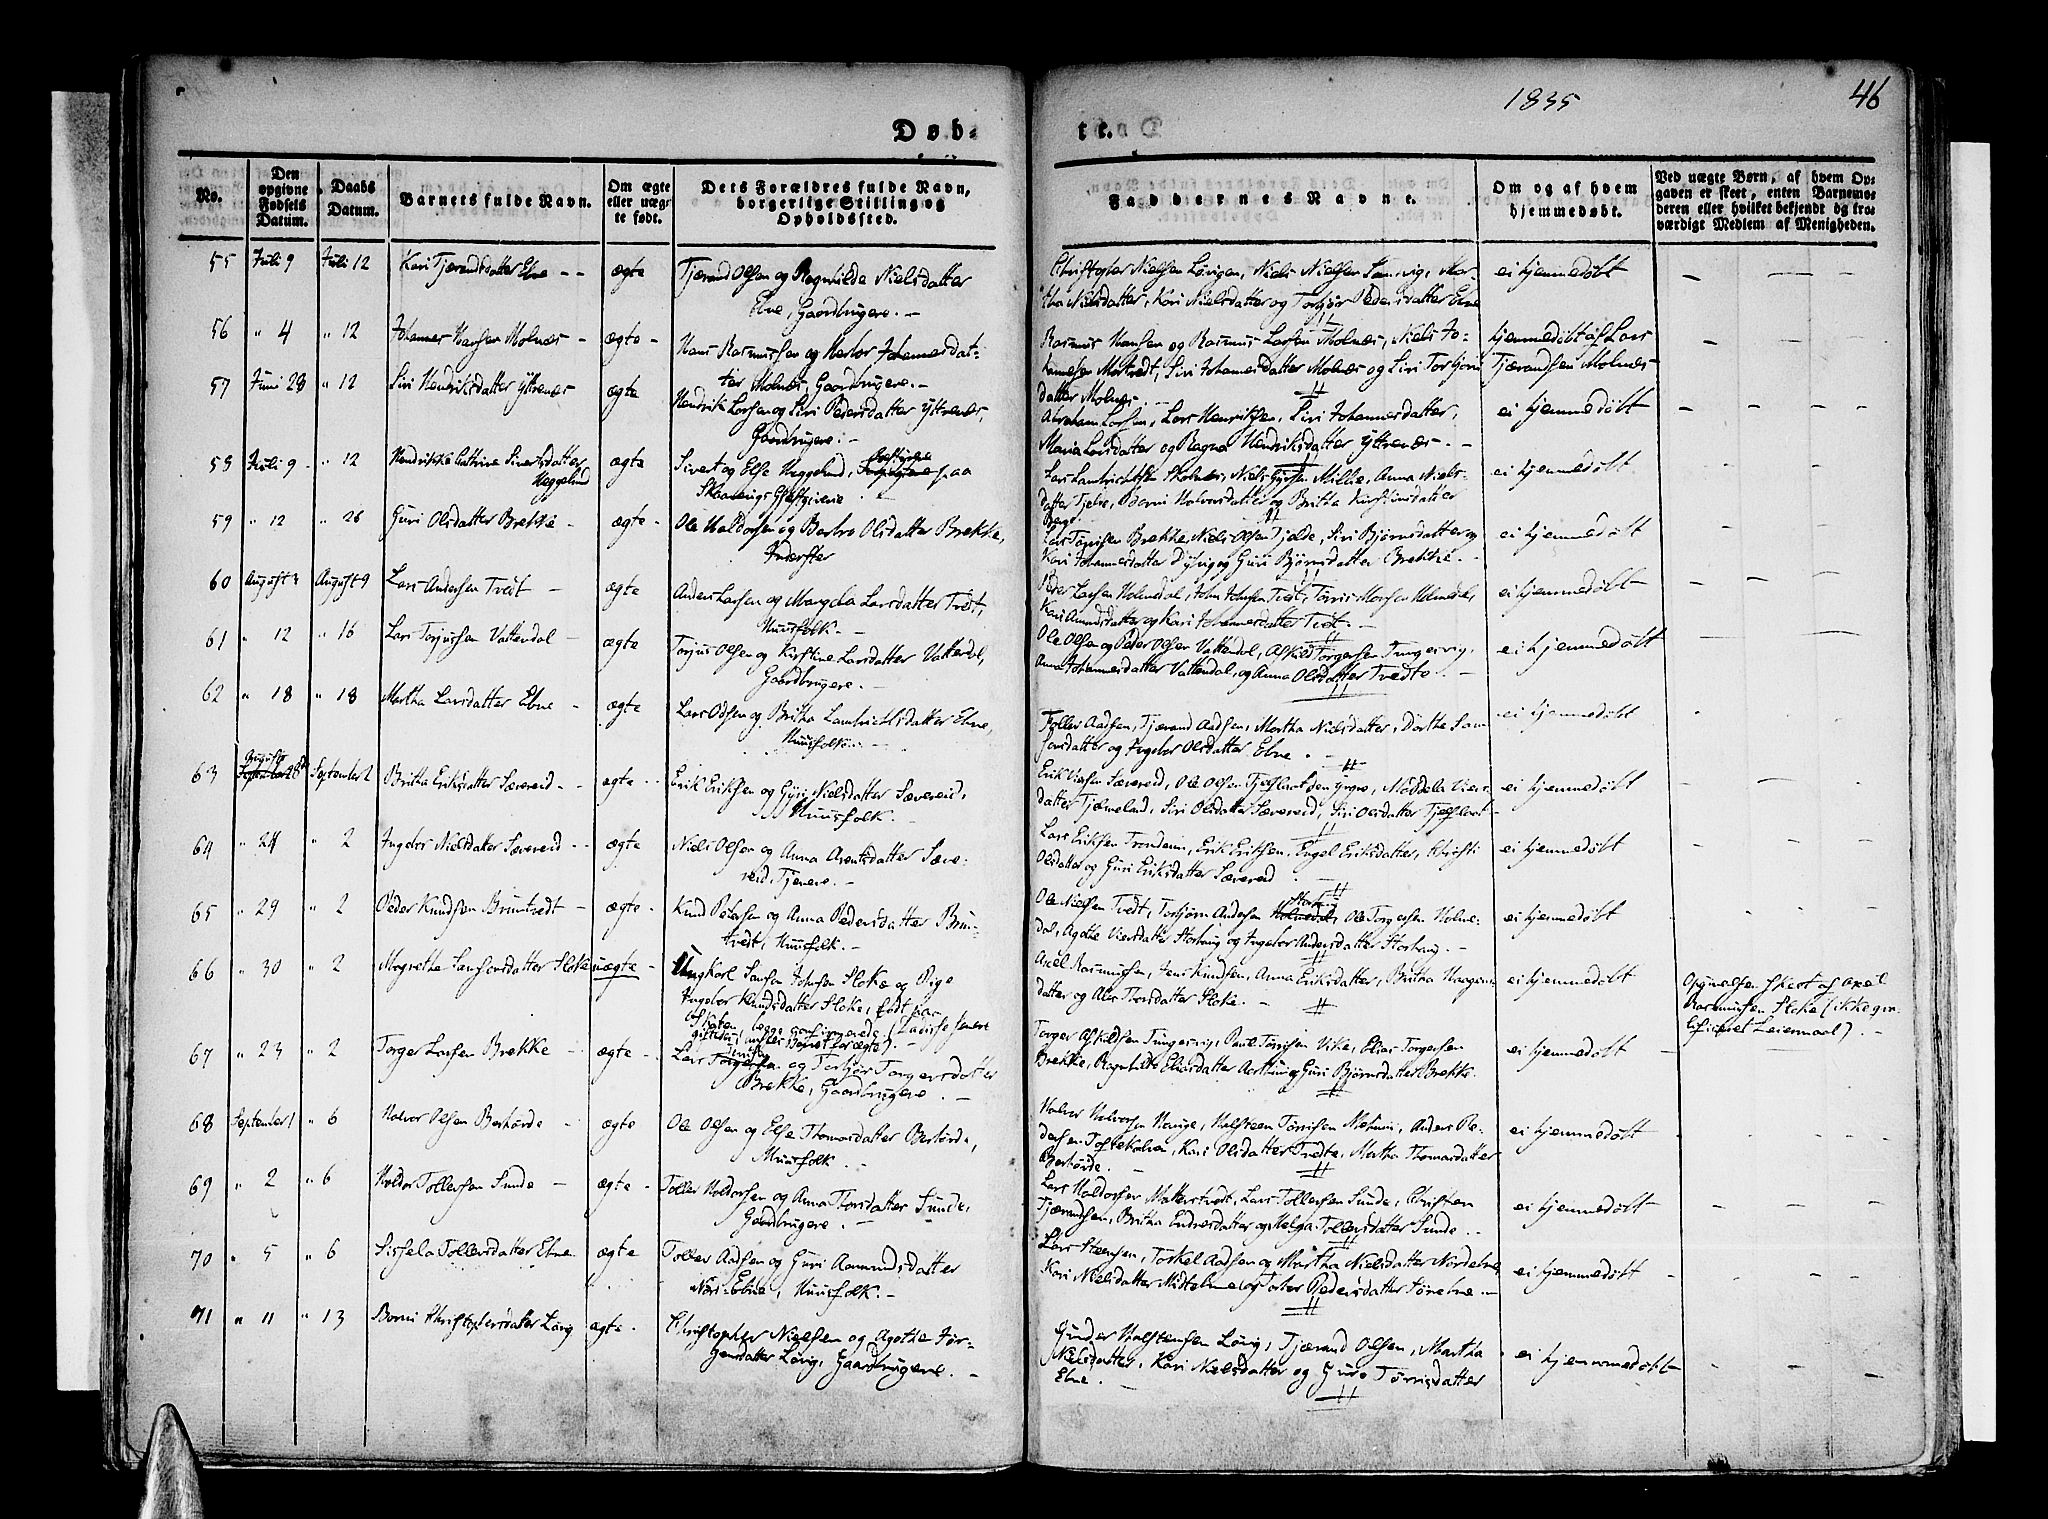 1835
46
Døb-
te.
No.
Den opgivne Fødsels Datum.
Daabs Datum.
Barnets fulde Navn.
Om ægte eller uægte født.
Dets Forældres fulde Navn, borgerlige Stilling og Opholdssted.
Faddernes Navne.
Om og af hvem hjemmedøbt.
Ved uægte Børn, af hvem Opgaven er skeet, enten Barnemoderen eller hvilket bekjendt og troværdigt Medlem af Menigheden.
55 Juli 9 Juli 12 Kari Tjærandsdatter Ebne - - ægte Tjærand Olsen og Ragnhilde Nielsdatter
Ebne, Gaardbrugere. -
Christopher Nielsen Løvigen, Niels Nielsen Sandvig, Mar-
tha Nielsdatter, Kari Nielsdatter og Torbjør Pedersdatter Ebne
ei hjemmedøbt
56 " 4 " 12 Johannes Hansen Molnes - ægte - Hans Rasmussen og Herlor Johannesdat-
ter Molnes, Gaardbrugere. -
Rasmus Hansen og Rasmus Larsen Molnes, Niels Jo-
hannesen Mørkvedt, Siri Johannesdatter Molnes og Siri Torbjørns
datter Molnes.
hjemmedøbt af Lars
Tjærandsen Molnes
57 Juni 28 " 12 Siri Hendriksdatter Yttrenæs ægte Hendrik Larsen og Siri Pedersdatter Yttrenæs,
Gaardbrugere. -
Abraham Larsen, Lars Henriksen, Siri Johannesdatter,
Maria Larsdatter og Ragna Hendriksdatter Yttrenæs. -
ei hjemmedøbt
58 Juli 9 - " 12 Hendrikke Cathrine Sivertsdatter
Heggelund
ægte Sivert og Else Heggelund, paa
Lars Lambrichtsen Skolnes, Niels Gursen Millie, Anna Niels-
datter Tjelve, Borni Halvorsdatter og Britha Kirstinsdatter
Berge.
ei hjemmedøbt
59 " 12 " 26 Guri Olsdatter Brekke - ægte - Ole Haldorsen og Barbro Olsdatter Brekke,
Inderster
Lars Tørrisen Brekke, Niels Olsen Tjelde, Siri Bjørnsdatter og
Kari Johannesdatter Dysvig og Guri Bjørnsdatter Brekke. -
ei hjemmedøbt
60 August 3 August 9 Lars Andersen Tvedt - ægte Anders Larsen og Margela Larsdatter Tvedt,
Huusfolk. -
Peder Larsen Holmedal, John Johnsen Tvedt, Tørris Monsen Holmedal,
Kari Amundsdatter og Kari Johannesdatter Tvedt. -
ei hjemmedøbt
61 " 12 " 16 Lars Torjussen Vattendal - ægte Torjus Olsen og Kirstine Larsdatter Vattendal,
Gaardbrugere. -
Ole Olsen og Peder Olsen Vattendal, Askild Torgersen Tungesvig,
Anna Johannesdatter Vattendal, og Anna Olsdatter Tvedte. -
ei hjemmedøbt
62 " 18 " 18 Martha Larsdatter Ebne - ægte Lars Odsen og Britha Lambrichtsdatter Ebne,
Huusfolk. -
Toller Aadsen, Tjærand Aadsen, Martha Nielsdatter, Dorthe Sam-
sonsdatter og Ingebor Olsdatter Ebne. -
ei hjemmedøbt
63 August September 2 Britha Eriksdatter Sævereid - - ægte - Erik Eriksen og Gyri Nielsdatter Sævereid,
Huusfolk. -
Erik Viersen Sævereid, Ole Olsen Tjosflaat den yngre, Maddela Viers-
datter Tjærneland, Siri Olsdatter Sævereid, Siri Olsdatter Tjosflaat -
ei hjemmedøbt
64 " 24 " 2 Ingebor Nielsdatter Sævereid - - ægte Niels Olsen og Anna Arentsdatter Sæve-
reid, Tjenere. -
Lars Eriksen Erik Eriksen, Engel Eriksdatter, Christi
Olsdatter og Guri Eriksdatter Sævereid
ei hjemmedøbt
65 " 29 " 2 Peder Knudsen Bruntvedt - ægte - Knud Petersen og Anna Pedersdatter Brun-
tvedt, Huusfolk. -
Ole Nielsen Tvedt, Torbjørn Andersen Ole Torgersen Holme-
dal, Agathe Viersdatter Storhaug og Ingebor Andersdatter Storhaug. -
ei hjemmedøbt
66 " 30 " 2 Magrethe Samsonsdatter Støle uægte - Ungkarl Samson Johnsen Støle og Pige
Ingebor Knudsdatter Støle, født paa
Axel Rasmussen, Jens Knudsen, Anna Eriksdatter, Britha Haagens-
datter og Alis Thorsdatter Støle. -
ei hjemmedøbt
Opgivelsen skeet af Axel
Rasmussen Støle (ikke qva-
lificeret Leiermaal). -
67 " 23 " 2 Torger Larsen Brekke - ægte - Lars og Torbjør Torgersdatter
Brekke, Gaardbrugere. -
Torger Askildsen Tungesvig, Paul Tørrisen Vike, Elias Torgersen
Brekke, Ragnhilde Eliasdatter og Guri Bjørnsdatter Brekke.
ei hjemmedøbt
68 September 1 " 6 Halvor Olsen Børhørde - ægte Ole Olsen og Else Thomasdatter Børhørde,
Huusfolk. -
Halvor Halvorsen Hauge, Halsteen Tørrisen Anders Pe-
dersen Toftekalven, Kari Olsdatter Tvedte, Martha Thomasdatter
Børhørde.
ei hjemmedøbt
69 " 2 " 6 Haldor Tollersen Sunde - ægte - Toller Haldorsen og Anna Thorsdatter Sunde,
Gaardbrugere. -
Lars Haldorsen Matterstvedt, Lars Tollersen Sunde, Christen
Tjærandsen, Britha Endresdatter og Helga Tollersdatter Sunde. -
ei hjemmedøbt
70 " 5 " 6 Sissela Tollersdatter Ebne ægte Toller Aadsen og Guri Aamundsdatter
Nord-Ebne, Huusfolk. -
Lars Steensen, Torkel Aadsen og Martha Nielsdatter Nordebne,
Kari Nielsdatter Mittebne og Torbor Pedersdatter Sørebne -
ei hjemmedøbt
71 " 11 " 13 Borni Christophersdatter Løvig ægte - Christopher Nielsen og Agathe Jør-
gensdatter Løvig, Gaardbrugere. -
Gunder Halstensen Løvig, Tjærand Olsen, Martha
Nielsdatter, Kari Nielsdatter og Guro Tørrisdatter
Ebne. -
ei hjemmedøbt